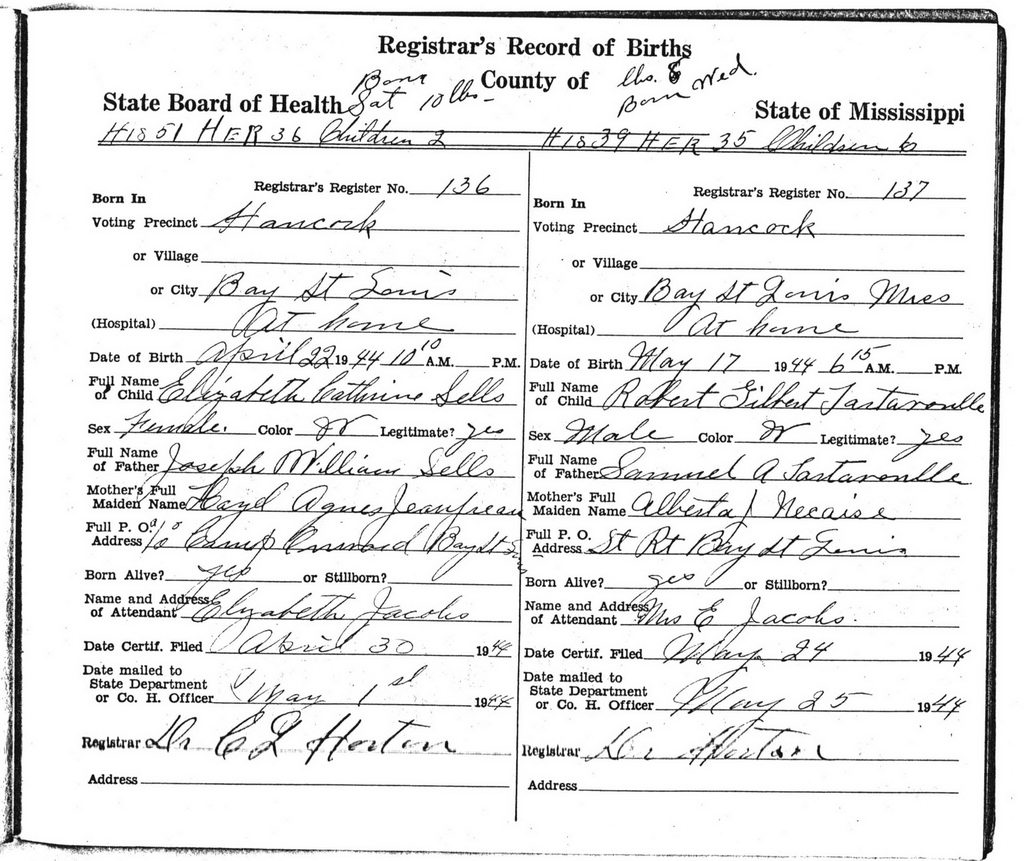 Registrar's Record of Births
Born County of lbs. 8
State Board of Health Sat 10 lbs- Born Wed. State of Mississippi
HIS 51 HER 36 Children 2 HIS 39 HER 35 Children 6
Registrar's Register No. 136
Born In
Voting Precinct Hancock
or Village
or City Bay St Louis
(Hospital) At home
Date of Birth April 22 1944 10 10 A.M. P.M.
Full Name
of Child Elizabeth Cathrine Sells
Sex Female. Color W Legitimate? yes
Full Name
of Father Joseph William Sells
Mother's Full
Maiden Name Hazel Agnes Jeanfreau
Full P. O. %
Address % Camp Bay St
Born Alive? yes or Stillborn?
Name and Address
of Attendant Elizabeth Jacobs
Date Certif. Filed April 30 1944
Date mailed to
State Department
or Co. H. Officer May 1st 1944
Registrar Dr C L Horton
Address
Registrar's Register No. 137
Born In
Voting Precinct Hancock
or Village
or City Bay St Louis Miss
(Hospital) At home
Date of Birth May 17 1944 6 15 A.M. P.M.
Full Name
of Child Robert Gilbert Tartavoulle
Sex Male Color W Legitimate? yes
Full Name
of Father Samuel A Tartavoulle
Mother's Full
Maiden Name Alberta J Necaise
Full P. O.
Address St Rt Bay St Louis
Born Alive? yes or Stillborn?
Name and Address
of Attendant Mrs E Jacobs.
Date Certif. Filed May 24 1944
Date mailed to
State Department
or Co. H. Officer May 25 1944
Registrar Dr Horton
Address